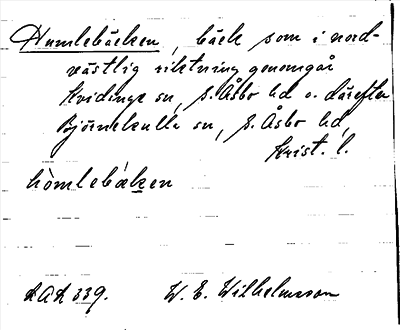 Humlebäcken, bäck som i nord-
västlig riktning genomgår
Kvidinge sn, S. Åsbo hd o. därefter
Björnekulla sn, S. Åsbo hd,
Krist. l.
hòmlebæ̀ken
LAL 339. W. E. Wilhelmsson